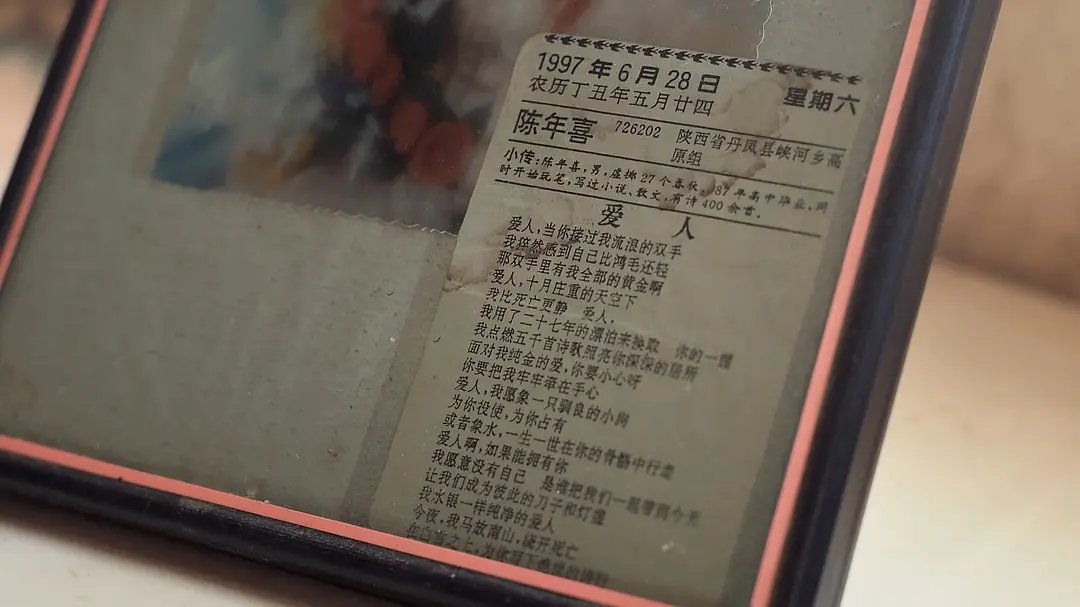 1997年6月28日 星期六
农历丁丑年五月廿四
陈年喜 726202 陕西省丹凤县峡河乡高
原组
小传:陈年喜,男,虚掷27个春秋,87年高中毕业,同
时开始玩笔,写过小说、散文,有诗400余首。
爱人
爱人,当你接过我流浪的双手
我猝然感到自己比鸿毛还轻
那双手里有我全部的黄金啊
爱人,十月庄重的天空下
我比死亡更静 爱人,
我用了二十七年的漂泊来换取 你的一盟
我点燃五千首诗歌照亮你深深的居所
面对我纯金的爱,你要小心呀
你要把我牢牢牵在手心
爱人,我愿象一只驯良的小狗
为你役使,为你占有
或者象水,一生一世在你的骨骼中行走
爱人啊,如果能拥有你
我愿意没有自己 是谁把我们一起带到今天
让我们成为彼此的刀子和灯盏
我水银一样纯净的爱人
今夜,我马放南山,绕开死亡
在白纸之上,为你写下